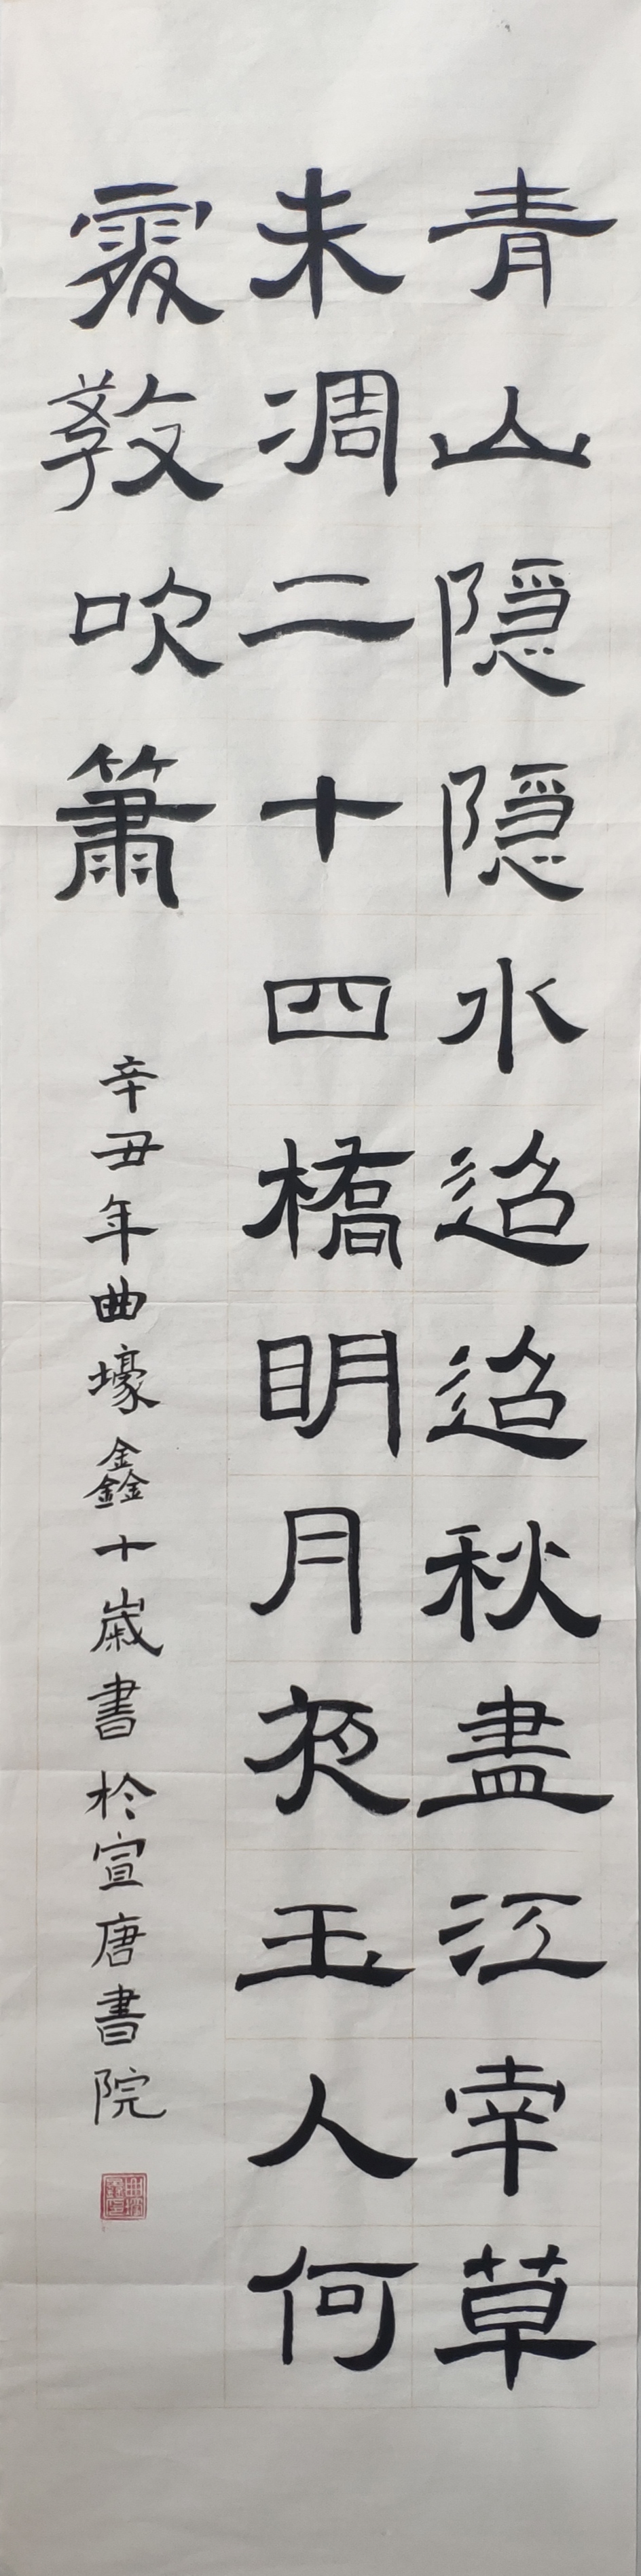 青山隐隐水迢迢秋盡江南草
未凋二十四橋明月夜玉人何
處教吹簫
辛丑年曲壕鑫十歲書於宣唐書院